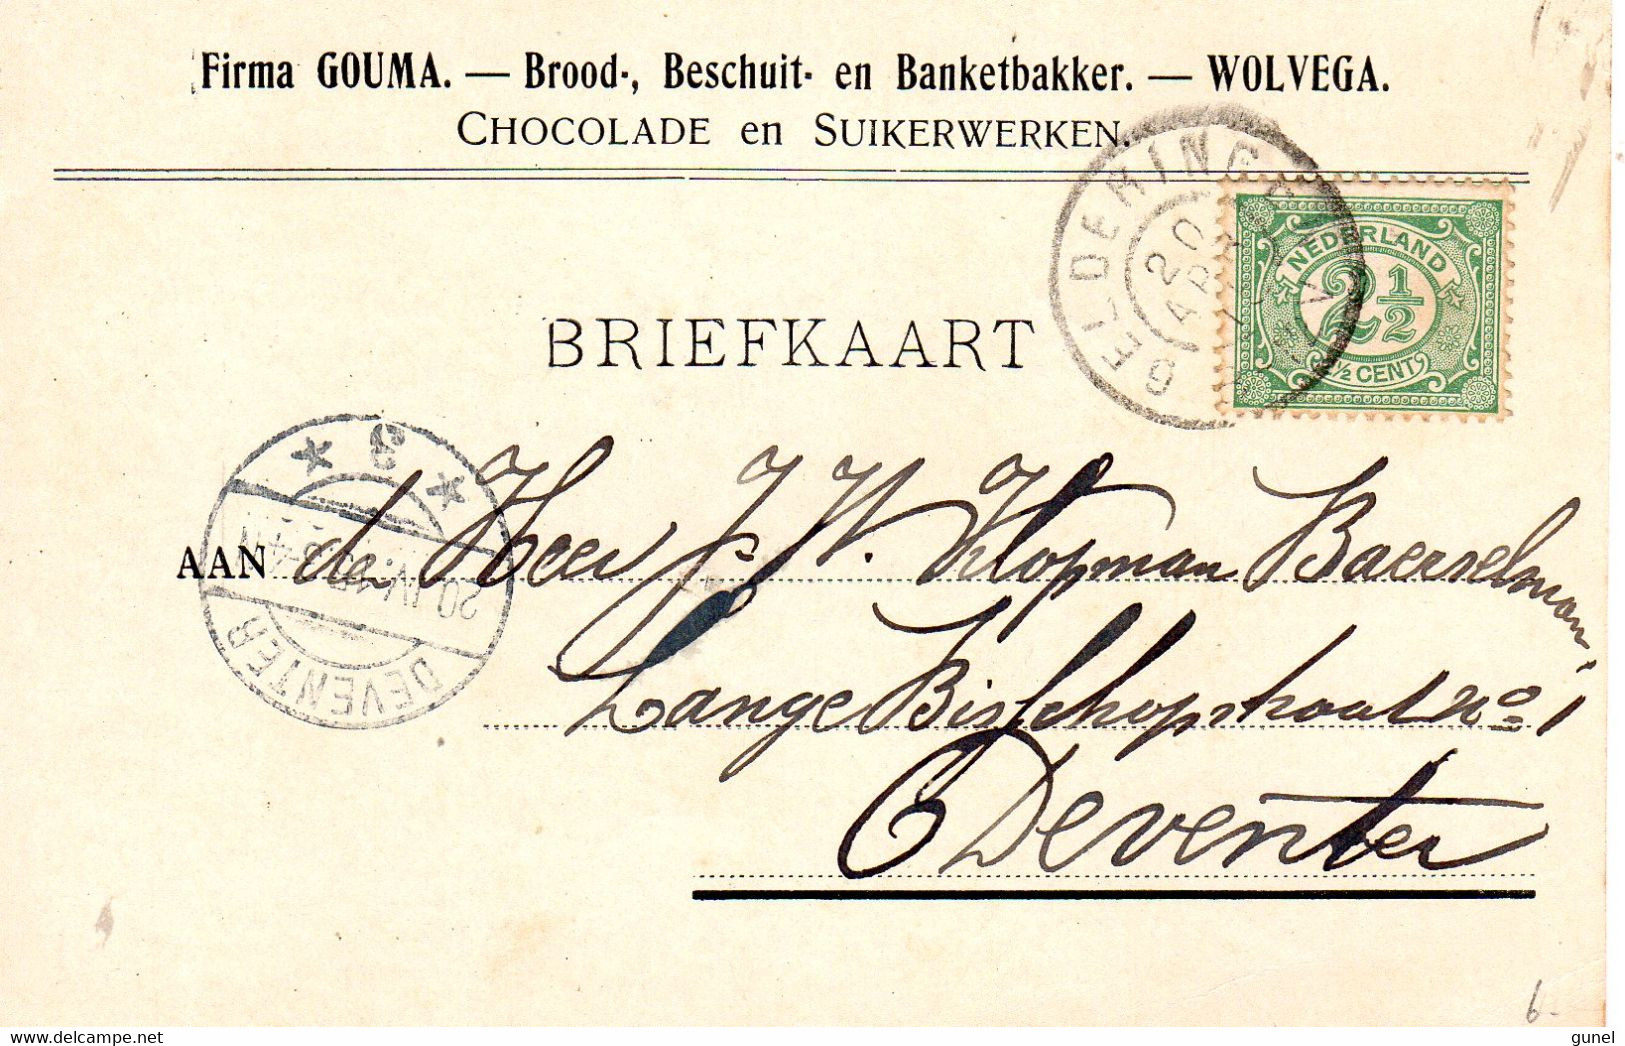 Firma GOUMA. — Brood-, Beschuit- en Banketbakker. — WOLVEGA.
CHOCOLADE en SUIKERWERKEN.
GELDERINGEN
20 APR
NEDERLAND
2 1/2
2½ CENT
BRIEFKAART
AAN den Heer J. W. Klopman Baerselman,
Lange Bisschopstraat no 1
Deventer
DEVENTER
20.IV.
6-
gunel
© delcampe.net